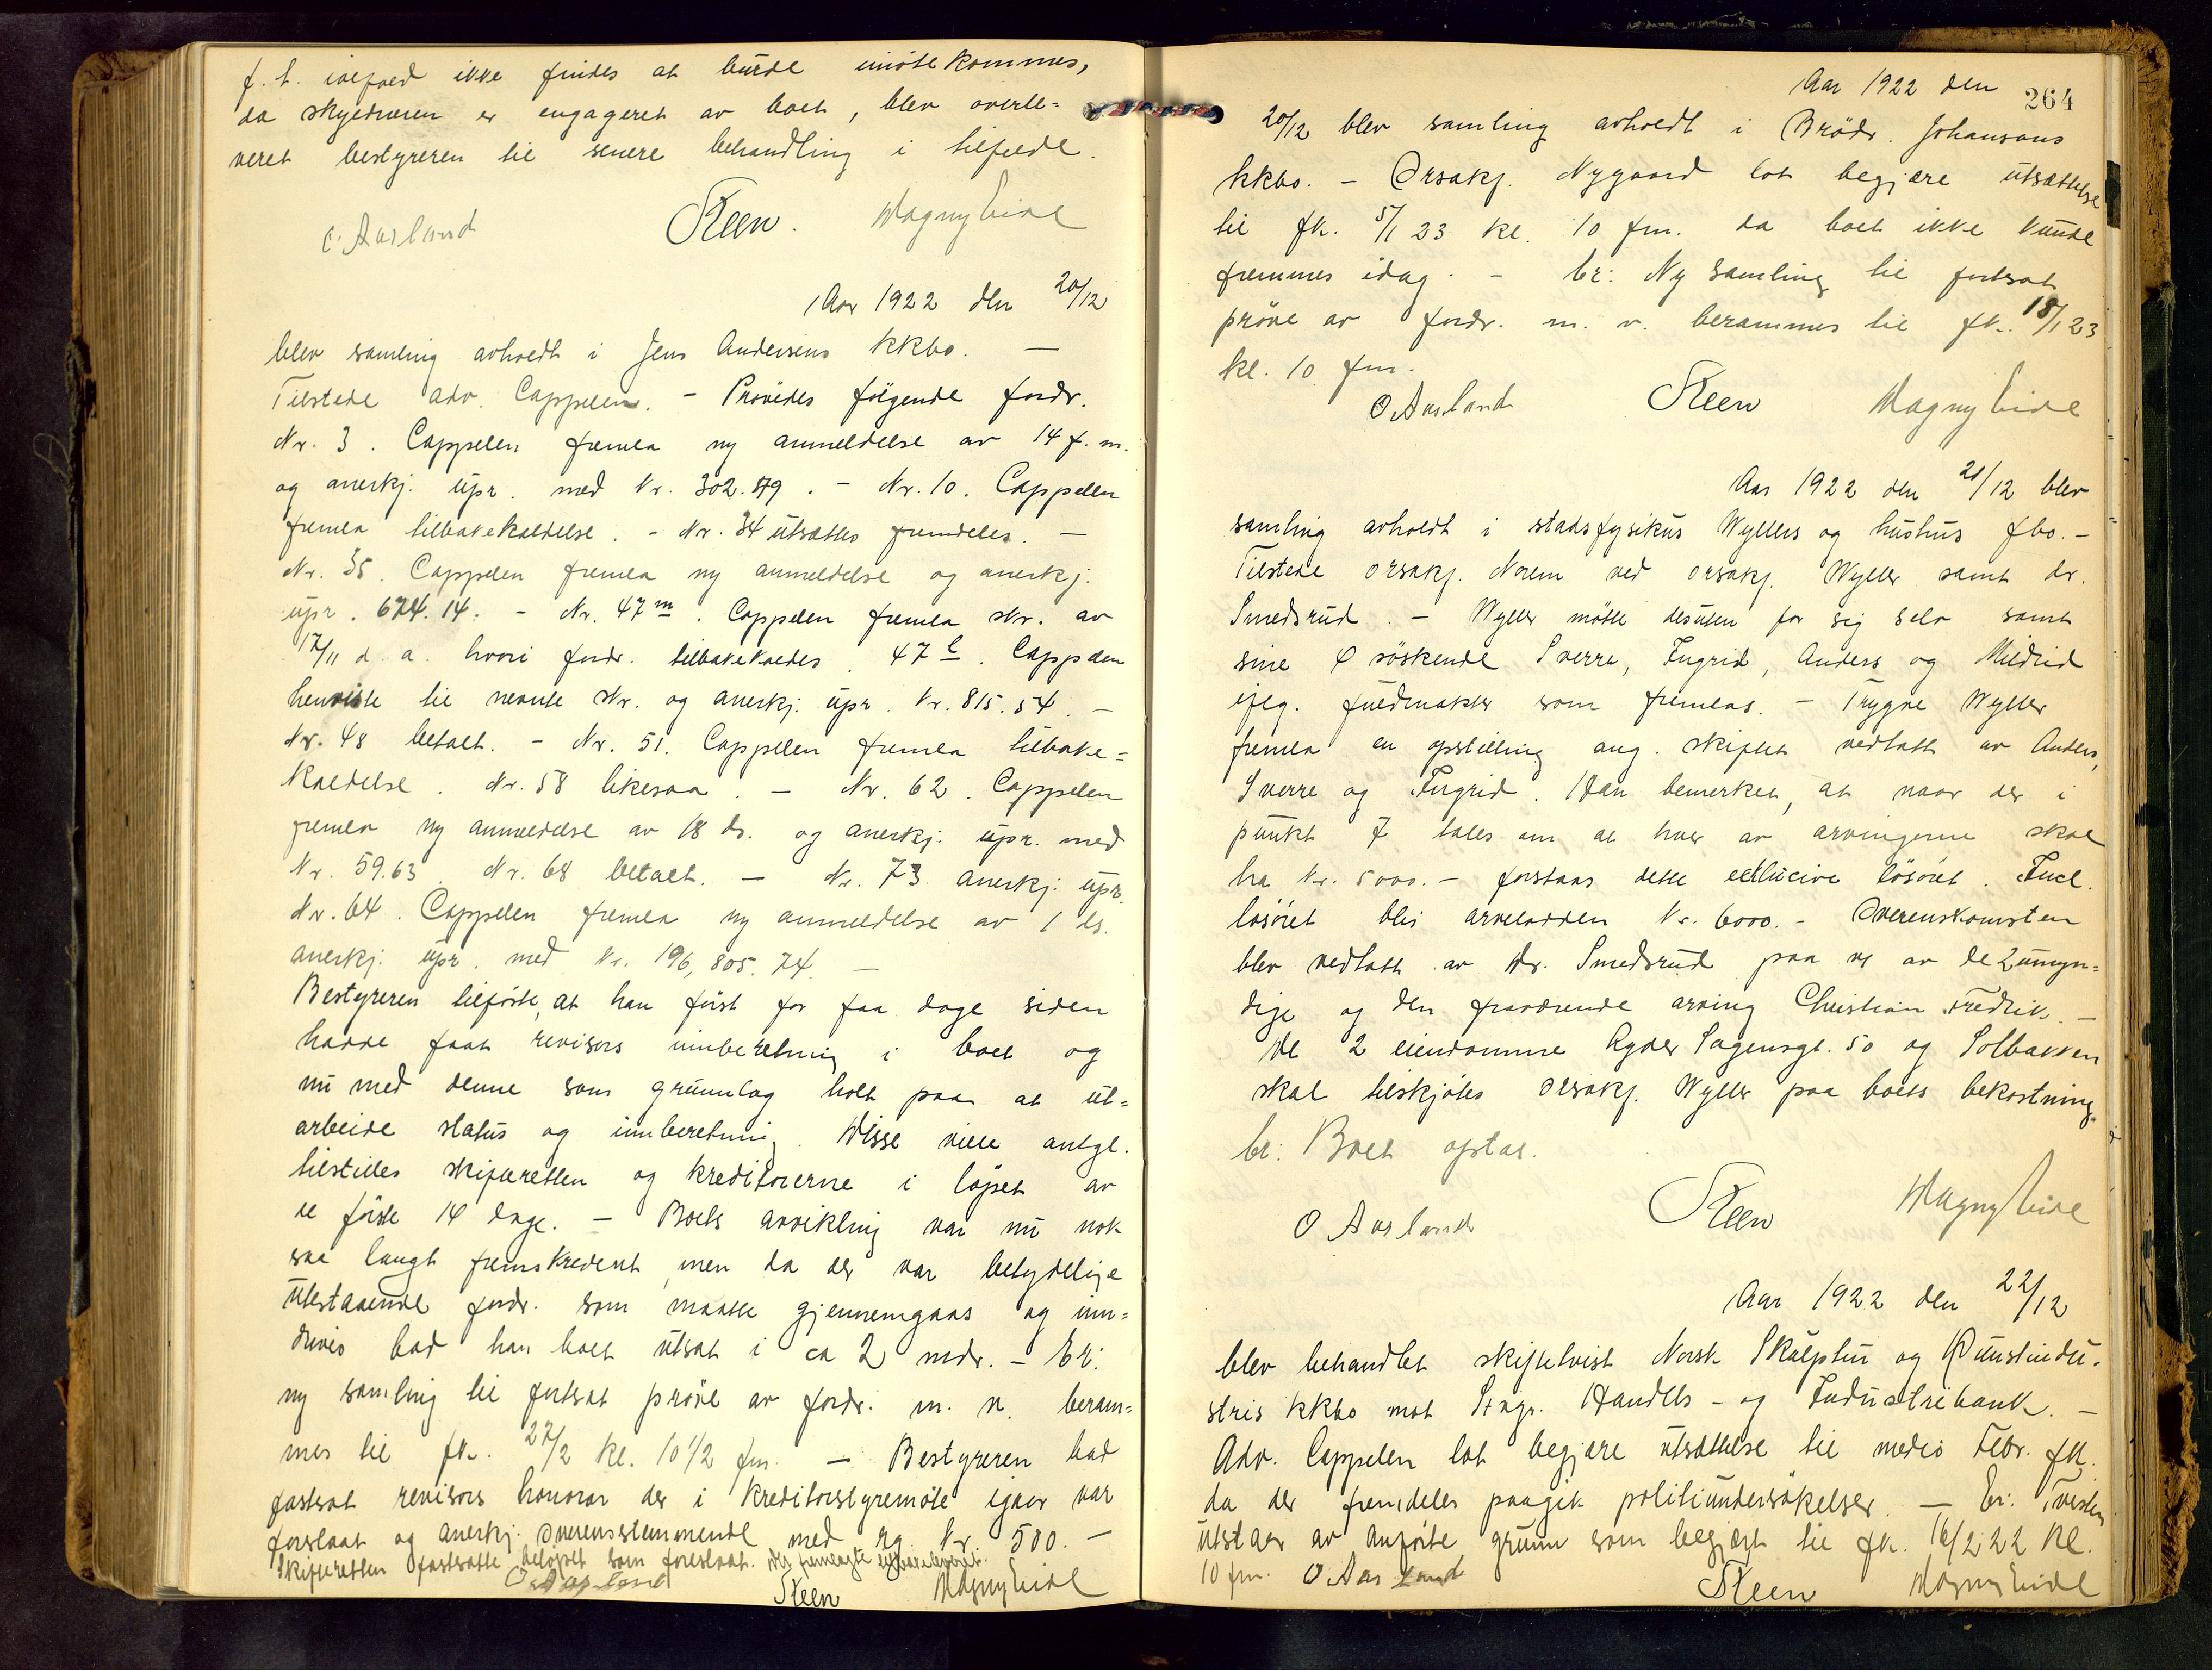 f. t. ialfald ikke findes at burde imøtekommes,
da skyldneren er engageret av boet, blev overle=
veret bestyreren til senere behandling i tilfælde.
O. Aarland Steen. Magny Eide
Aar 1922 den 20/12
blev samling avholdt i Jens Andersens kkbo. —
Tilstede adv. Cappelen. - Prøvedes følgende fordr.
Nr. 3. Cappelen fremla ny anmeldelse av 14 f. m.
og anerkj. upr. med kr. 302.89. - Nr. 10. Cappelen
fremla tilbakekaldelse. - Nr. 34 utsættes fremdeles. —
Nr. 35. Cappelen fremla ny anmeldelse og anerkj.
upr. 674.14. - Nr. 47 m. Cappelen fremla skr. av
17/11 d. a. hvori fordr. tilbakekaldes. 47 l. Cappelen
henviste til nevnte skr. og anerkj. upr. kr. 815.54. —
Nr. 48 betalt. - Nr. 51. Cappelen fremla tilbake=
kaldelse. Nr. 58 likesaa. — Nr. 62. Cappelen
fremla ny anmeldelse av 18 ds. og anerkj. upr. med
kr. 59.63. Nr. 68 betalt. — Nr. 73 anerkj. upr.
Nr. 64. Cappelen fremla ny anmeldelse av 1 ds.
anerkj. upr. med kr. 196,805.74. —
Bestyreren tilførte, at han først for faa dage siden
hadde faat revisors innberetning i boet og
nu med denne som grunnlag holt paa at ut=
arbeide status og innberetning. Disse ville antgl.
tilstilles skifteretten og kreditorerne i løpet av
de første 14 dage. — Boets avvikling var nu nok
saa langt fremskredent, men da der var betydelige
utestaaende fordr. som maatte gjennemgaas og inn=
drives bad han boet utsat i ca 2 mdr. - Er:
ny samling til fortsat prøve av fordr. m. v. beram=
mes til fk. 27/2 kl. 10 1/2 fm. — Bestyreren bad
fastsat revisors honorar der i kreditorstyremøte igaar var
foreslaat og anerkj. overensstemmende med rg. kr. 500. —
Skifteretten fastsatte beløpet som foreslaat. Det fremlagte tilbakeleveret.
O Aarland Steen Magny Eide
264
Aar 1922 den
20/12 blev samling avholdt i Brødr. Johansons
kkbo. - Orsakf. Nygaard lot begjære utsættelse
til fk. 5/1 23 kl. 10 fm. da boet ikke kunde
fremmes idag. - Er: Ny samling til fortsat
prøve av fordr. m. v. berammes til fk. 18/1 23
kl. 10 fm.
O Aarland Steen Magny Eide
Aar 1922 den 21/12 blev
samling avholdt i stadsfysikus Wyllers og hustrus fbo. -
Tilstede orsakf. Norem ved orsakf. Wyller samt dr.
Smedsrud. - Wyller møtte desuten for sig selv samt
sine 4 søskende Sverre, Ingrid, Anders og Mildrid
iflg. fuldmakter som fremlas. - Trygve Wyller
fremla en opstilling ang. skiftet vedtatt av Anders,
Sverre og Ingrid. Han bemerket, at naar der i
punkt 7 tales om at hver av arvingerne skal
ha kr. 5000. - forstaas dette exclusive løsøret. Incl.
løsøret blir arvelodden kr. 6000. - Overenskomsten
blev vedtatt av dr. Smedsrud paa v. av de 2 umyn=
dige og den fraværende arving Christian Fredrik. —
De 2 eiendomme Ryder Sagensgt. 50 og Solbakken
skal tilskjøtes orsakf. Wyller paa boets bekostning.
Er: Boet optas.
O Aarland Steen Magny Eide
Aar 1922 den 22/12
blev behandlet skiftetvist Norsk Skulptur og Kunstindu=
stris kkbo mot Stvgr. Handels- og Industribank. —
Adv. Cappelen lot begjære utsættelse til medio Febr. fk.
da der fremdeles paagik politiundersøkelser. — Er: Tvisten
utstaar av anførte grunn som begjært til fk. 16/2 22 kl.
10 fm. O Aarland Steen Magny Eide